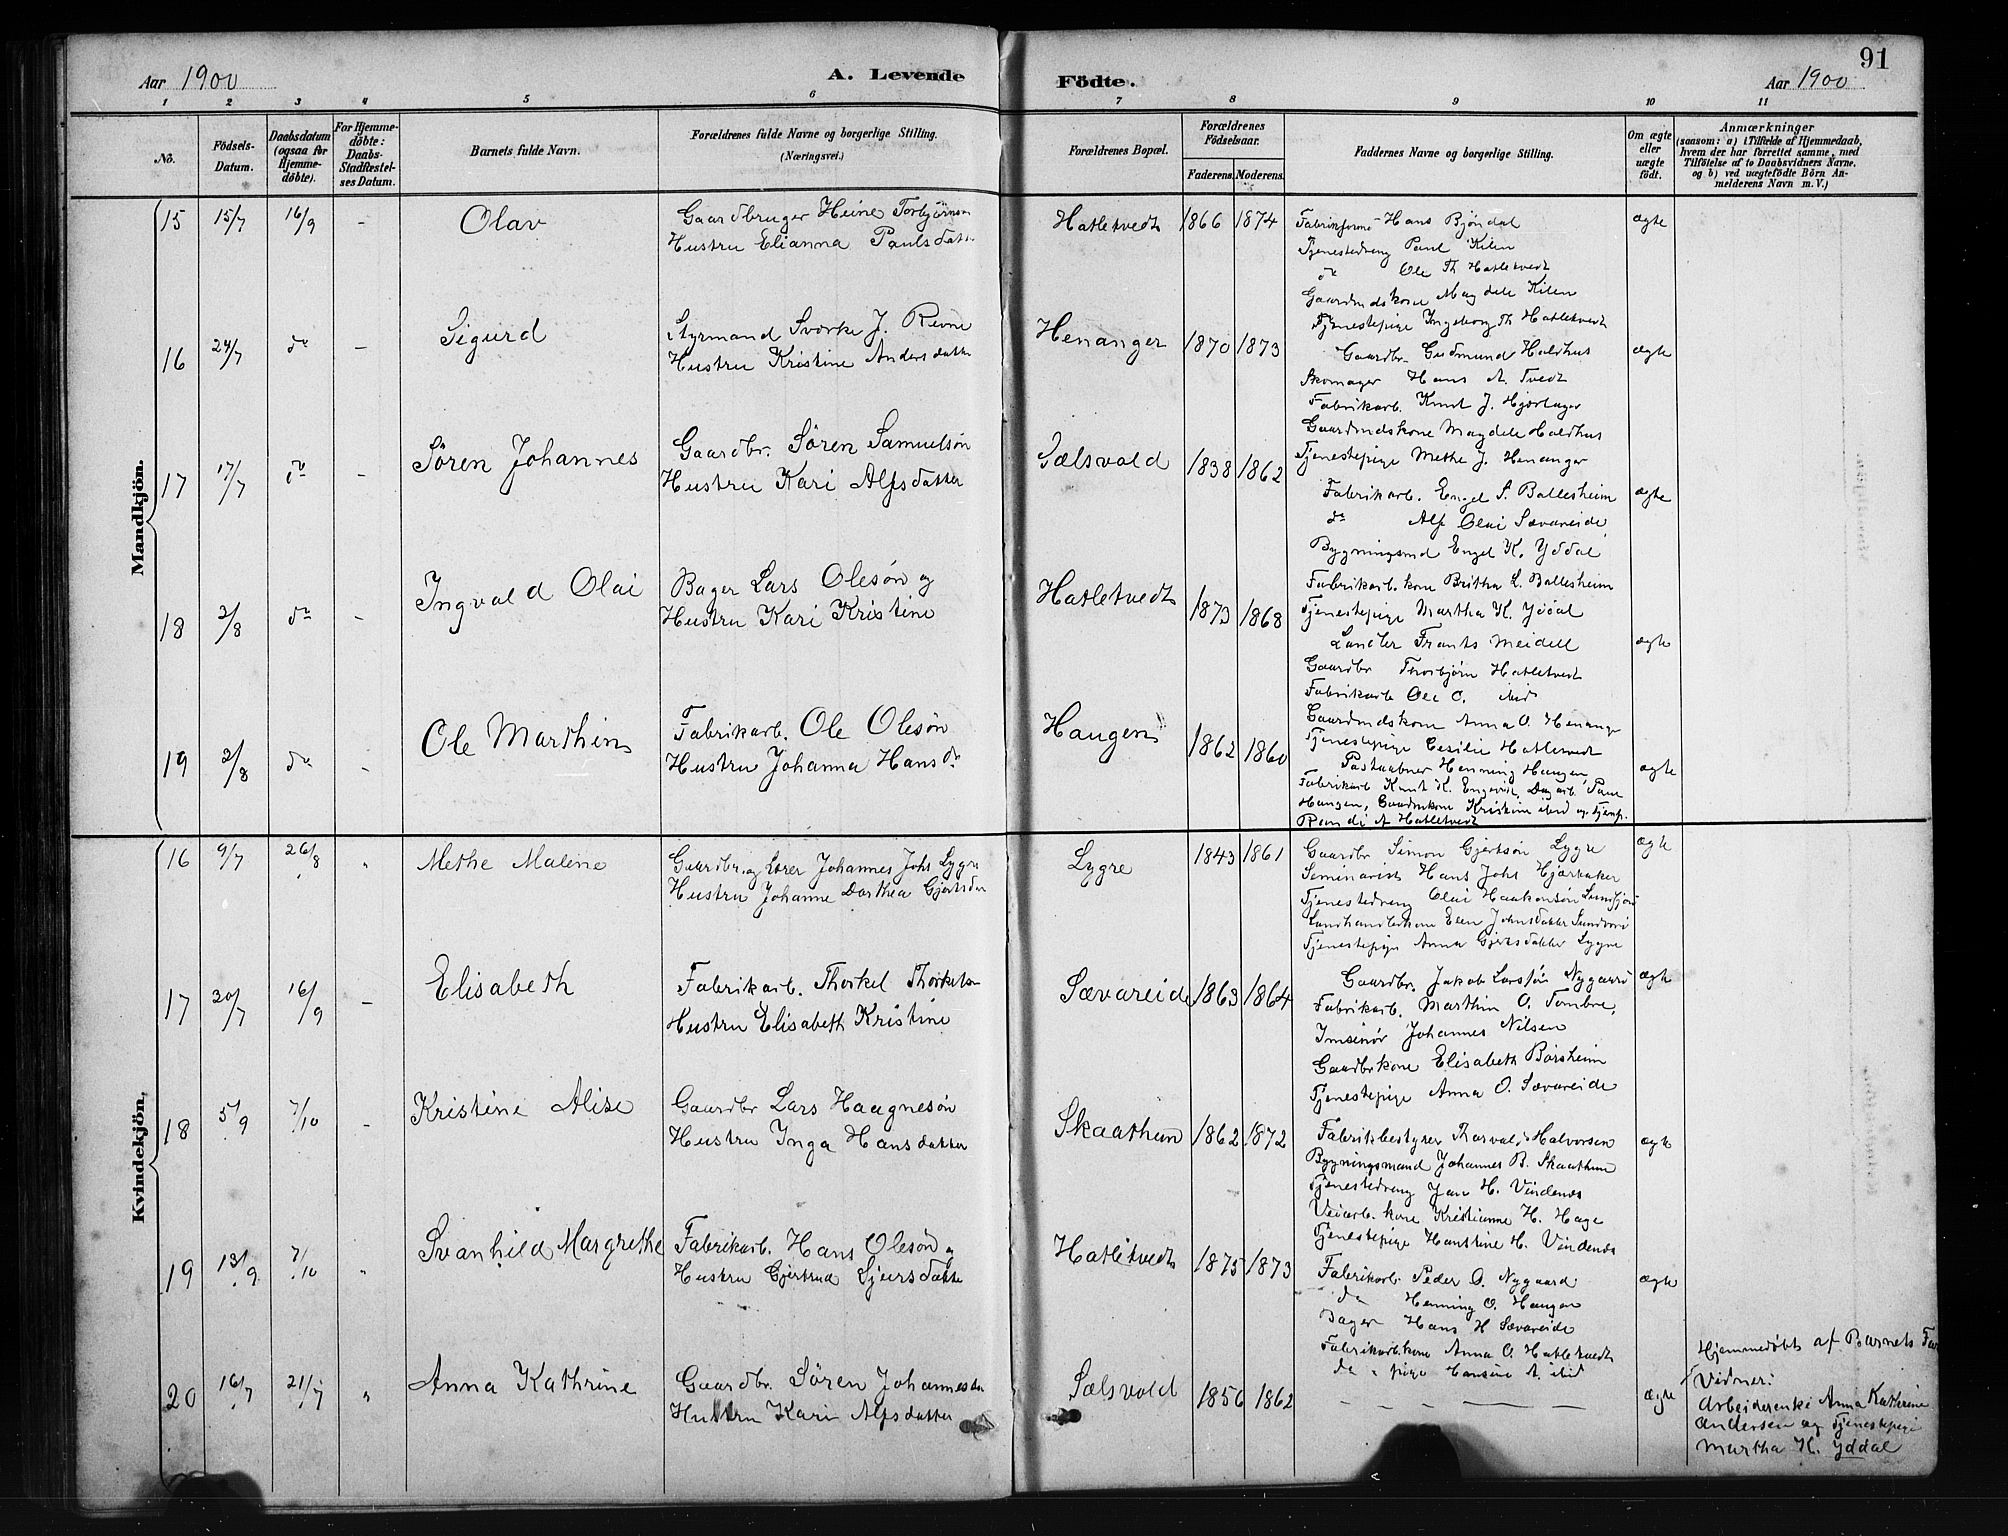 91
Aar 1900
A. Levende Födte.
Aar 1900
1 2 3 4 5 6 7 8 9 10 11
No.
Födsels-Datum.
Daabsdatum (ogsaa for Hjemme-döbte).
For Hjemme-döbte: Daabs-Stadfæstel-ses Datum.
Barnets fulde Navn.
Forældrenes fulde Navne og borgerlige Stilling.
(Næringsvei.)
Forældrenes Bopæl.
Forældrenes Födselsaar.
Faderens. Moderens.
Faddernes Navne og borgerlige Stilling.
Om ægte eller uægte födt.
Anmærkninger
(saasom: a) i Tilfælde af Hjemmedaab,
hvem der har forrettet samme, med
Tilföielse af to Daabsvidners Navne,
og b) ved uægtefödte Börn An-
melderens Navn m. V.)
Mandkjön.
15 15/7 16/9 - Olav
Gaardbruger Heine Torbjørnsøn
Hustru Elianna Paulsdatter
Hatletvedt 1866 1874
Hans Bjøndal
Tjenestedreng Paul Kilen
do Ole Th Hatletvedt
Gaardmdskone Magdele Kilen
Tjenestepige Ingeborg Th Hatletvedt
ægte
16 24/7 do - Sigurd
Styrmand Sverke J. Revne
Hustru Kristine Andersdatter
Henanger 1870 1873
Gaardbr. Gudmund Holdhus
Skomager Hans A. Tvedt
Fabrikarb. Knut J. Hjortager
Gaardmdskone Magdele Holdhus
Tjenestepige Methe J. Henanger
ægte
17 17/7 do - Søren Johannes
Gaardbr. Søren Samuelsøn
Hustru Kari Alfsdatter
Sælsvold 1838 1862
Fabrikarb. Engel S. Ballesheim
do Alf Olai Sævareide
Bygningsmd Engel K. Yddal
Fabrikarb. kone Britha L. Ballesheim
Tjenestepige Martha K. Yddal
ægte
18 2/8 do - Ingvald Olai
Bager Lars Olesøn og
Hustru Kari Kristine
Hatletvedt 1873 1868
Frants Meidell
Gaardbr Thorbjørn Hatletvedt
Fabrikarb Ole O. ibid
Gaardmdskone Anna O. Henanger
Tjenestepige Cesilie Hatletvedt
ægte
19 2/8 do - Ole Marthin
Fabrikarb. Ole Olesøn
Hustru Johanna Hansdr
Haugen 1862 1860
Postaabner Henning Haugen,
Fabrikarb Knut K. Engevik, Dagarb. Paul
Haugen, Gaardmkone Kristine ibid og Tjenp.
Randi A Hatletvedt
ægte
Kvindekjön.
16 9/7 26/8 " Methe Malene
Gaardbr. og Lærer Johannes Johs Lygre
Hustru Johanne Dorthea Gjertsdtr
Lygre 1843 1861
Gaardbr Simon Gjertsøn Lygre
Seminarist Hans Johs Hjertaker
Tjenestedreng Olai Haakonsøn Sundfjord
Landhandlerkone Elen Johnsdatter Sundvor
Tjenestepige Anna Gjertsdatter Lygre
ægte
17 20/7 16/9 - Elisabeth
Fabrikarb. Thorkel Thorkelsen
Hustru Elisabeth Kristine
Sævareide 1863 1864
Gaardbr. Jakob Larssøn Nygaard
Fabrikarb. Marthin O. Tombre,
Johannes Nilsen
Gaardbrkone Elisabeth Børsheim
Tjenestepige Anna O. Sævareide
ægte
18 5/9 7/10 - Kristine Alise
Gaardbr Lars Haagnesøn
Hustru Inga Hansdatter
Skaathun 1862 1872
Fabrikbestyrer Thorvald Halvorsen
Bygningsmand Johannes B. Skaathun
Tjenestedreng Jan H. Vindenes
Veiarb. kone Kristianne H. Hage
Tjenestepige Hanstine H. Vindenes
ægte
19 13/9 7/10 " Svanhild Margrethe
Fabrikarb. Hans Olesøn og
Hustru Gjertrud Sjursdatter
Hatletvedt 1875 1873
Fabrikarb Peder O. Nygaard
do Henning O. Haugen
Bager Hans H Sævareide
Fabrikarbkone Anna O. Hatletvedt
do " pige Hansine A. ibid
ægte
20 16/7 21/7 " Anna Kathrine
Gaardbr. Søren Johannesen
Hustru Kari Alfsdatter
Sælsvold 1856 1862
- - - - - -
ægte
Hjemmedøbt af Barnets Far
Vidner:
Arbeiderenke Anna Kathrine
Andersen og Tjenestepige
Martha K. Yddal